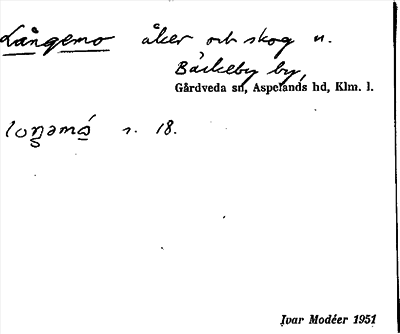 Långemo åker och skog n.
Bäckeby by,
Gårdveda sn, Aspelands hd, Klm. l.
s. 18.
Ivar Modéer 1951